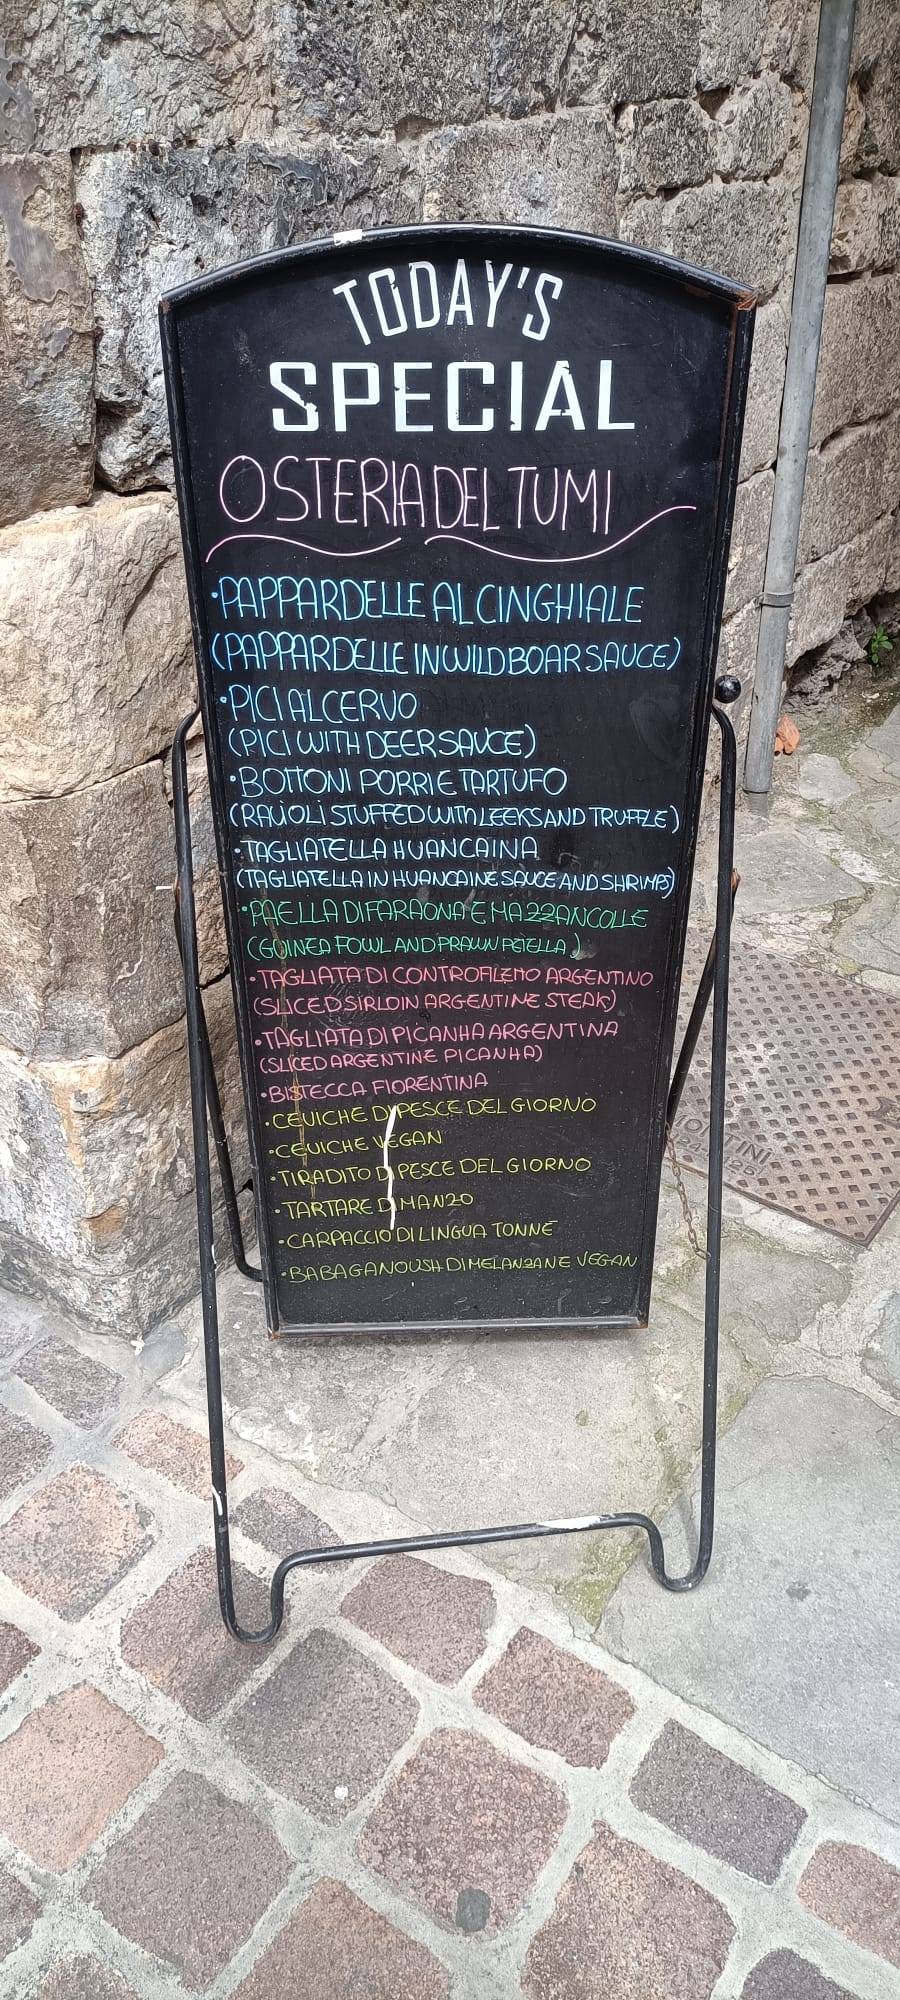 TODAY'S
SPECIAL
OSTERIA DEL TUMI
• PAPPARDELLE AL CINGHIALE
(PAPPARDELLE IN WILD BOAR SAUCE)
• PICI AL CERVO
(PICI WITH DEER SAUCE)
• BOTTONI PORRI E TARTUFO
(RAVIOLI STUFFED WITH LEEKS AND TRUFFLE)
• TAGLIATELLA HUANCAINA
(TAGLIATELLA IN HUANCAINE SAUCE AND SHRIMPS)
• PAELLA DI FARAONA E MAZZANCOLLE
(GUINEA FOWL AND PRAWN PAELLA)
• TAGLIATA DI CONTROFILETTO ARGENTINO
(SLICED SIRLOIN ARGENTINE STEAK)
• TAGLIATA DI PICANHA ARGENTINA
(SLICED ARGENTINE PICANHA)
• BISTECCA FIORENTINA
• CEVICHE DI PESCE DEL GIORNO
• CEVICHE VEGAN
• TIRADITO DI PESCE DEL GIORNO
• TARTARE DI MANZO
• CARPACCIO DI LINGUA TONNÉ
• BABAGANOUSH DI MELANZANE VEGAN